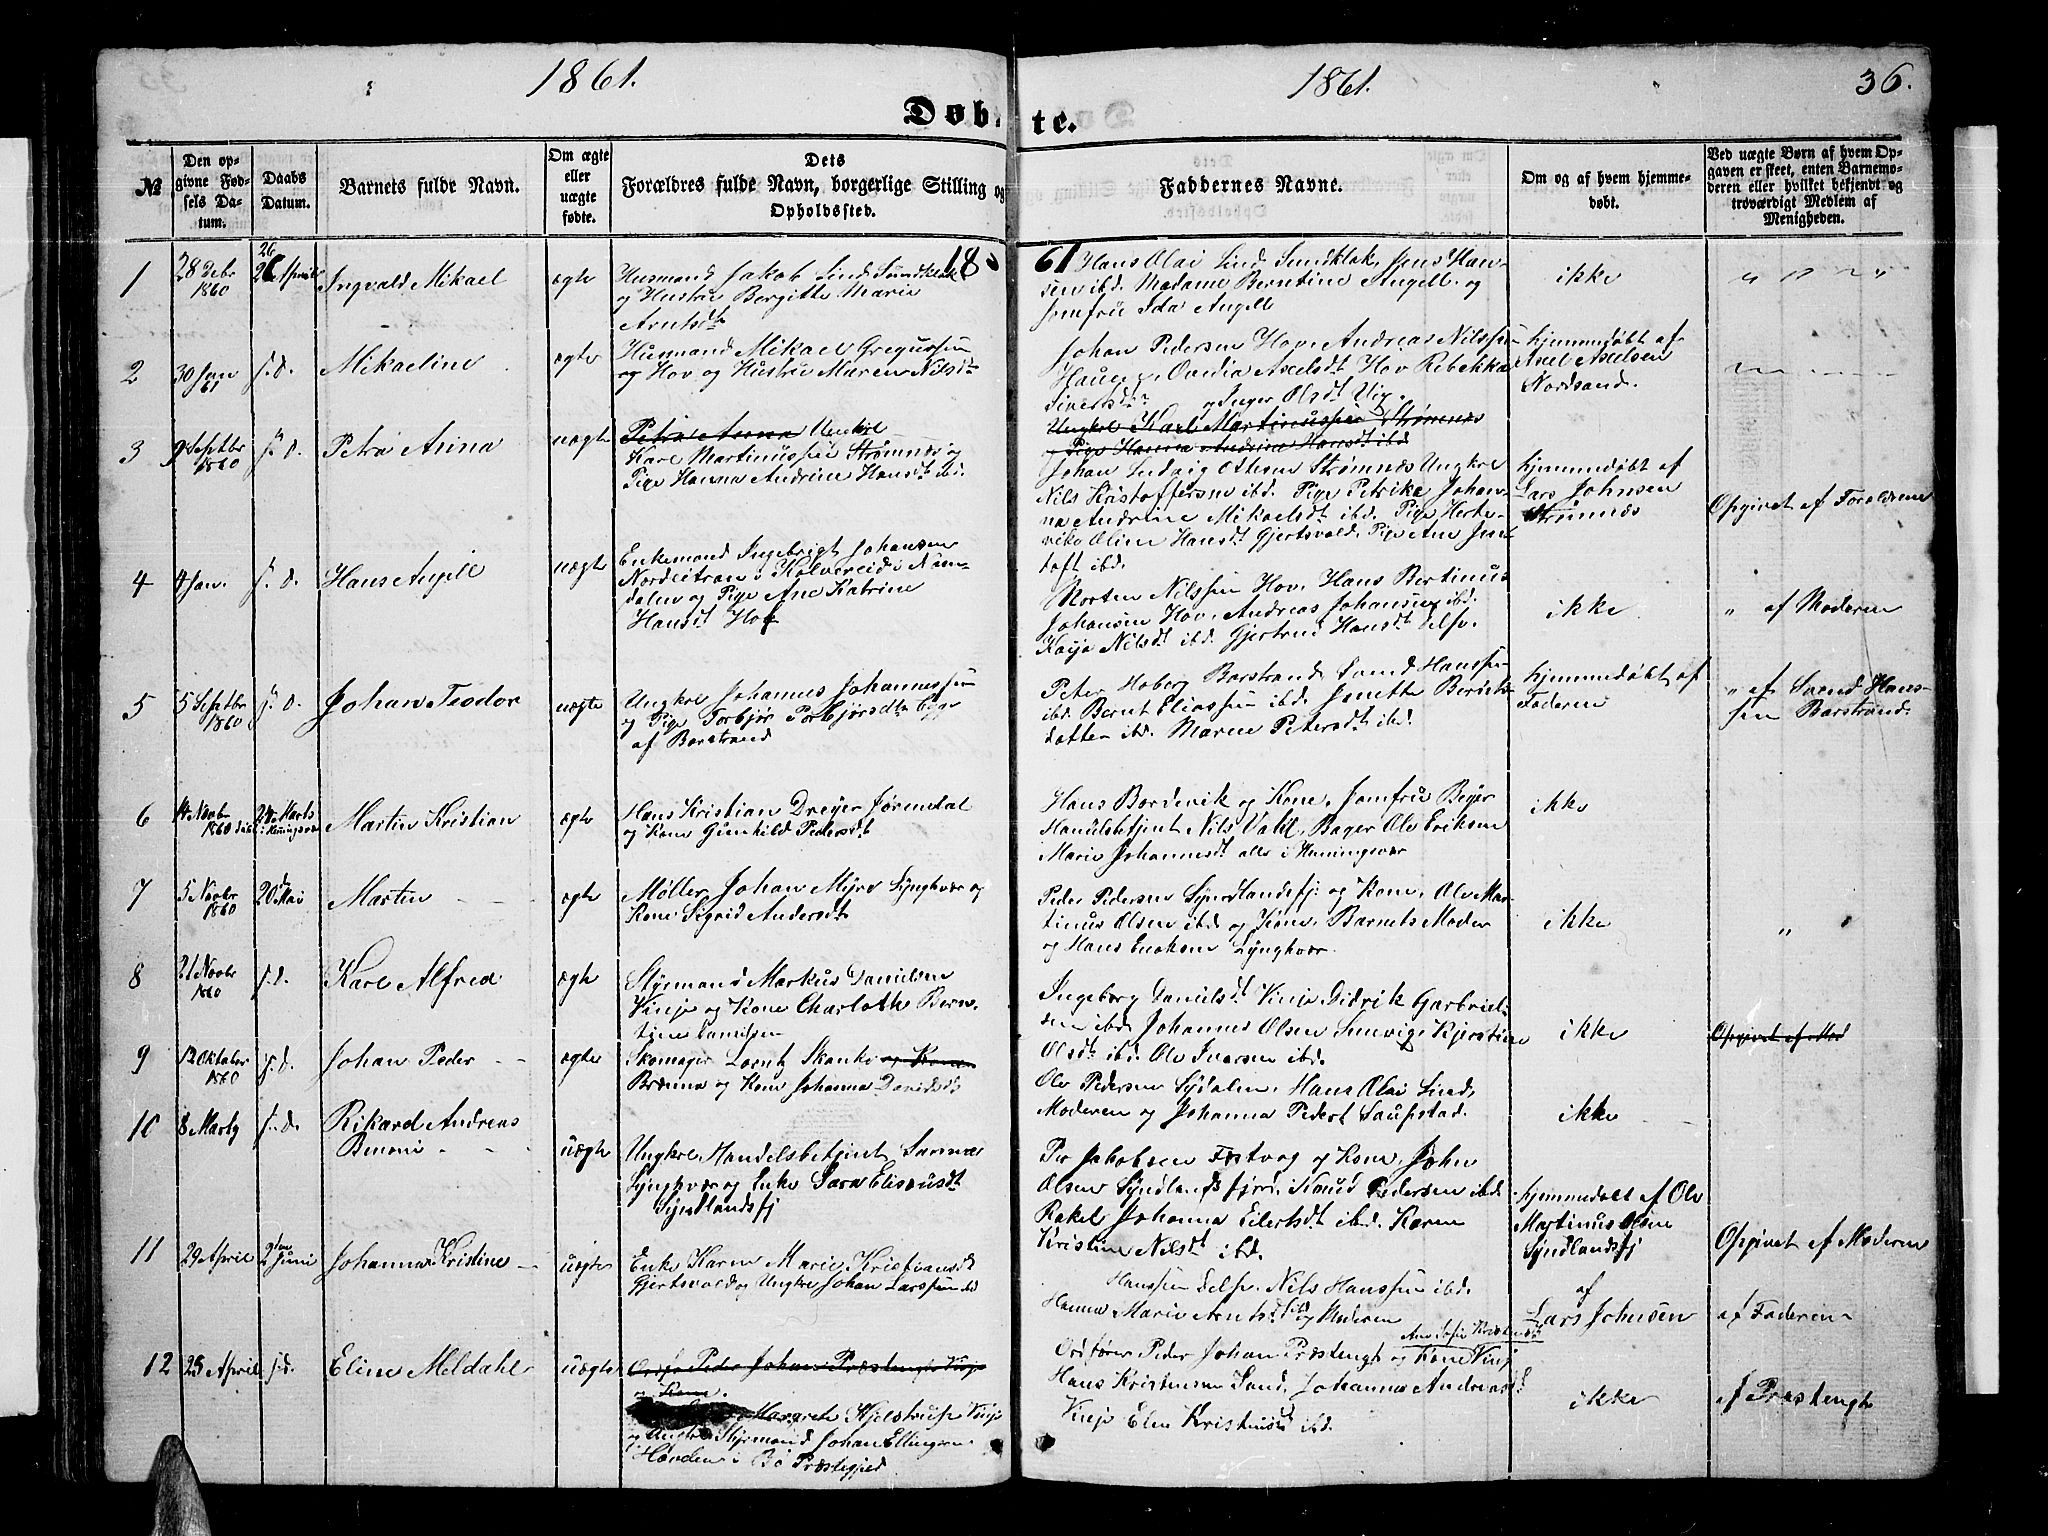 1861.
1861.
36.
Døb
te.
№
Den op-
givne Fød-
sels Da-
tum.
Daabs
Datum.
Barnets fulde Navn.
Om ægte
eller
uægte
fødte.
Dets
Forældres fulde Navn, borgerlige Stilling og
Opholdssted.
Faddernes Navne.
Om og af hvem hjemme-
døbt.
Ved uægte Børn af hvem Op-
gaven er skeet, enten Barnemo-
deren eller hvilket bekjendt og
troværdigt Medlem af
Menigheden.
18
61
1
28 Debr
1860
26
April
Ingvald Mikael
ægte
Husmand Jakob Lind Sundklak
og Hustru Bergitte Marie
Arntsdt
Hans Olai Lind Sundklak, Jens Han-
sen ibd. Madame Berntine Angell og
Jomfru Ida Angell
ikke
2
30 Jan
61
s. d.
Mikaeline
ægte
Husmand Mikael Gregussen
og Hov og Hustru Maren Nilsdt
Johan Pedersen Hov, Andreas Nilssen
Haug, Ovidia Axelsdt Hov Rebekka
Sivertsdt og Inger Olsdt Vig.
hjemmedøbt af
Axel Axelsen
Nordsand.
3
9 Septbr
1860
s. d.
Petra Anina
uægte
Petra Anina Ungkrl
Karl Martinussen Strømnæs og
Pige Hanna Andrine Hansdt ibd.
Ungkrl Karl Martinussen Strømnæs
og Pige Hanna Andrine Hansdt ibd
Johan Ludvig Othesen Strømnæs Ungkrl
Nils Kristoffersen ibd. Pige Petrike Johan-
na Andrine Mikaelsdt ibd. Pige Herte-
vike Oline Hansdt Gjertsvold, Pige Ane Jen
toft ibd.
hjemmedøbt af
Lars Johnsen
Strømnæs
Opgivet af Forældrene
4
4 Jan.
s. d.
Hans Angell
uægte
Enkemand Ingebrigt Johansen
Nordeitran i Kolvereid i Num-
dalen og Pige Ane Katrine
Hansdt Hov
Morten Nilssen Hov, Hans Bertinus
Johansen Hov, Andreas Johansen ibd.
Kaja Nilsdt ibd. Gjertrud Hansdt Delp.
ikke
" af Moderen
5
5 Septbr
1860
s. d.
Johan Teodor
uægte
Ungkrl Johannes Johannessen
og Pige Torbjør Torbjørsdt Egge
af Barstrand
Peter Hoberg Barstrand Svend Hanssen
ibd. Bernt Eliassen ibd. Jenette Berents-
datter ibd. Maren Petersdt ibd.
hjemmedøbt af
Faderen
" af Svend Hans-
sen Barstrand.
6
14 Novbr
1860
24 Marts
i Henningsvær
Martin Kristian
ægte
Hans Kristian Dreyer Jørendal
og Kone Gunhild Pedersdt
Hans Bordevik og Kone, Jomfru Beyer
Handelsbetjent Nils Vold, Bager Ole Eriksen
Marie Johannesdt alle i Henningsvær
ikke
7
5 Novbr
1860
20 Mai
Martin
ægte
Møller Johan Myre Lynghvær og
Kone Sigrid Andersdt
Peder Pedersen Syndlandsfj: og Kone, Ole Mar-
tinus Olsen ibd og Kone, Barnets Moder
og Hans Enoksen Lynghvær.
ikke
"
8
21 Novbr
1860
s. d.
Karl Alfred
ægte
Styrmand Markus Danielsen
Vinje og Kone Charlothe Bern-
tine Danielsen
Ingeborg Danielsdt Vinje Didrik Garbriel-
sen ibd. Johannes Olsen Smevig, Kjerstine
Olsdt ibd. Ole Ivarsen ibd.
ikke
Opgivet af Mod
9
12 Oktober
1860
s. d.
Johan Peder
ægte
Skomager Lorntz Skanke og Kone
Brenna og Kone Johanna Davidsdt
Ole Pedersen Sydalen, Hans Olai Lind,
Moderen og Johanna Pedersd Laupstad.
ikke
10
8 Marts
s. d.
Rikard Andreas
Benoni
uægte
Ungkrl Handelsbetjent
Lynghvær og Enke Sara Eliseusdt
Syndlandsfj
Per Jakobsen Festvog og Kone, John
Olsen Syndlandsfjord, Knud Pedersen ibd.
Rakel Johanna Eilertsdt ibd. Karen
Kristine Nilsdt ibd.
hjemmedøbt af Ole
Martinus Olsen
Syndlandsfj
Opgivet af Moderen
11
29 April
2den Juni
Johanna Kristine
uægte
Enke Karen Marie Kristiansdt
Gjertsvold og Ungkrl Johan Larssen ibd
Hanssen Delp. Nils Hanssen ibd.
Hanna Marie Arntsdt ibd og Moderen
af
Lars Johnsen
af Faderen
12
25 April
s. d.
Eline Meldahl
uægte
Ordfø Peder Johan Præstengt Vinje
og Kone.
Margrete Kjelstrup Vinje
og Ungkrl Styrmand Johan Ellingsen
Hovden i Bø Præstegjeld
Ordfører Peder Johan Præstengt og Kone Vinj
Hans Kristensen Sand, Johanna Andreasdt
Vinje Elen Kristensdt ibd.
ikke
af Præstengt